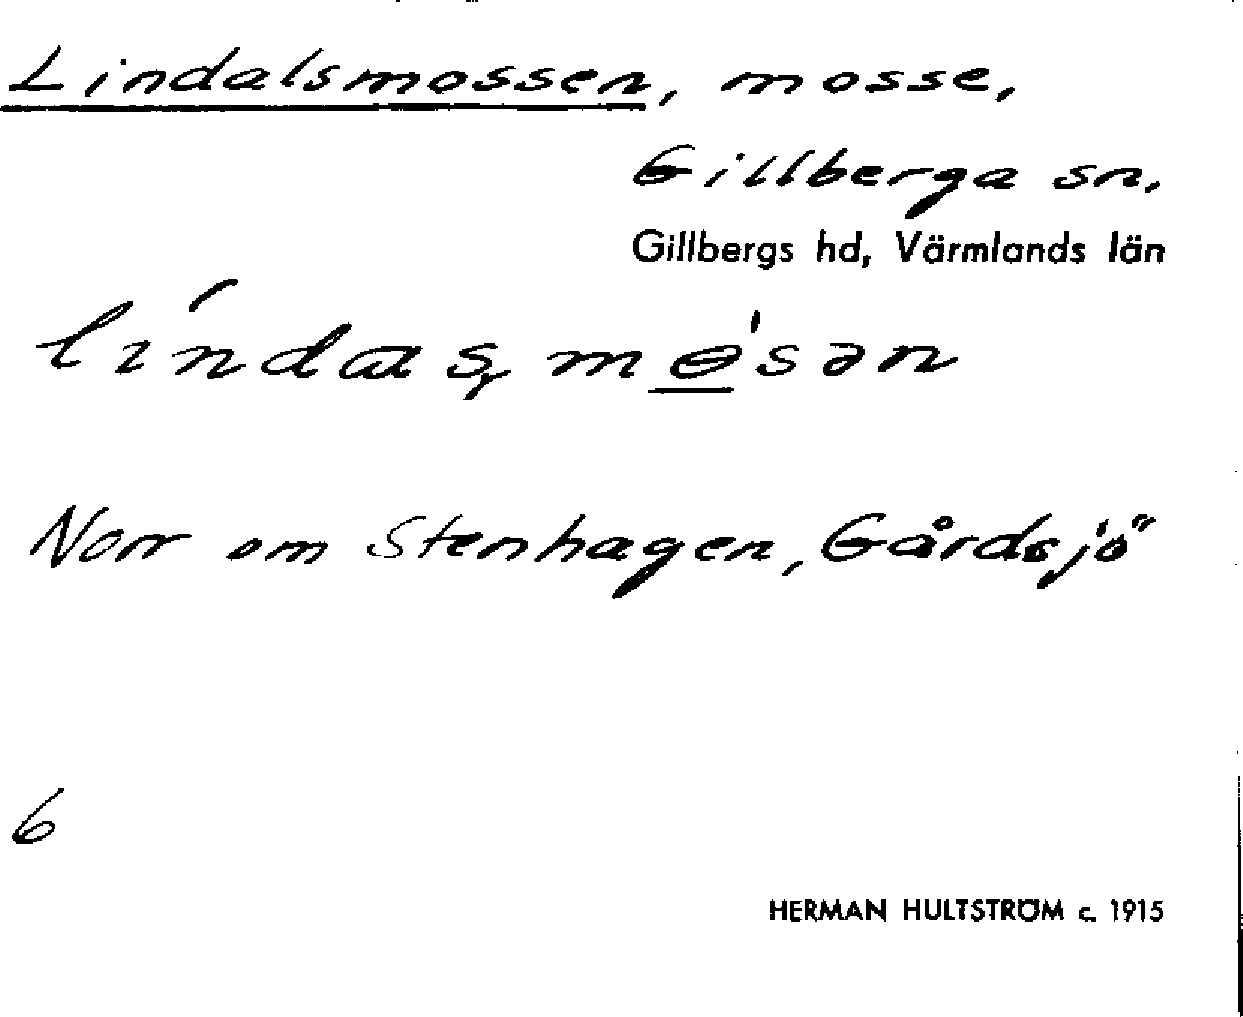 Lindalsmossen, mosse,
Gillberga sn.
Gillbergs hd, Värmlands län
Norr om Stenhagen, Gårdsjö
6
HERMAN HULTSTRÖM c. 1915